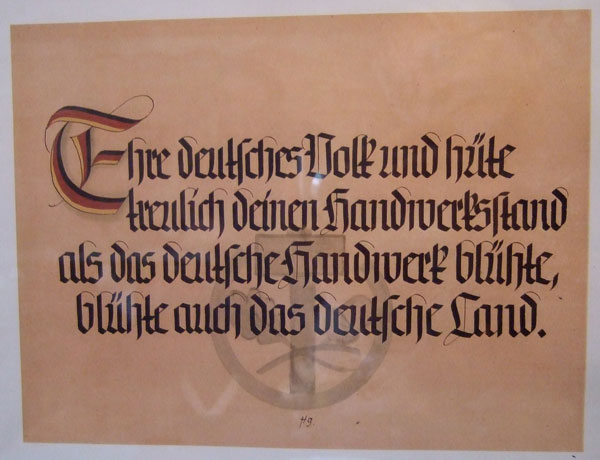 Ehre deutsches Volk und hüte
treulich deinen Handwerksstand
als das deutsche Handwerk blühte,
blühte auch das deutsche Land.
Hg.